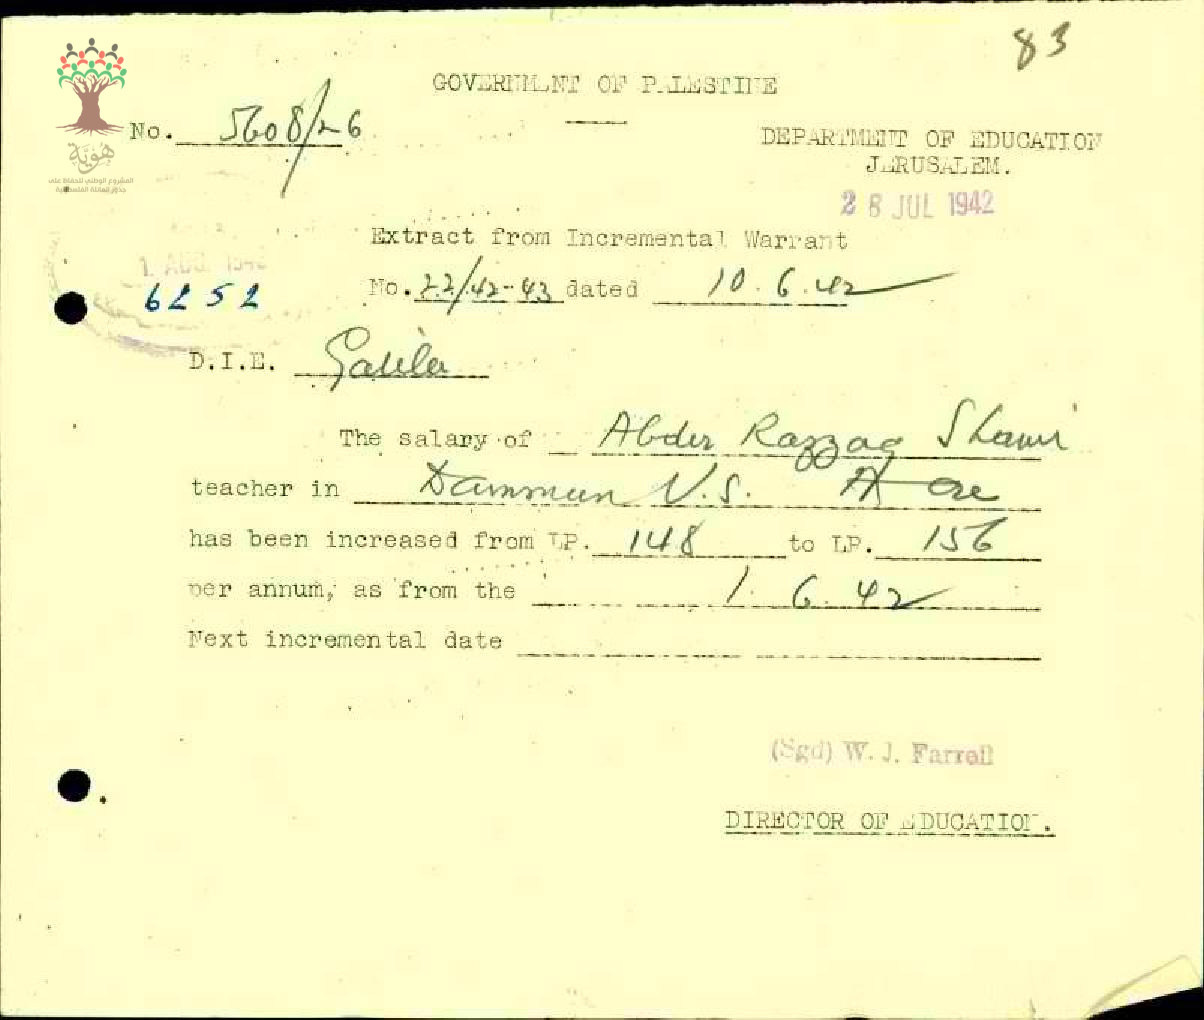 83
GOVERNMENT OF PALESTINE
No. 5608/26
DEPARTMENT OF EDUCATION
JERUSALEM.
28 JUL 1942
هوية
المشروع الوطني للحفاظ على
جذور العائلة الفلسطينية
Extract from Incremental Warrant
1 AUG 194
6252
No. 22/42-43 dated 10.6.42
D.I.E. Galilee
The salary of Abder Razzaq Shami
teacher in Dammun V.S. Acre
has been increased from LP. 148 to LP. 156
per annum, as from the 1.6.42
Next incremental date
(Sgd) W. J. Farrell
DIRECTOR OF EDUCATION.